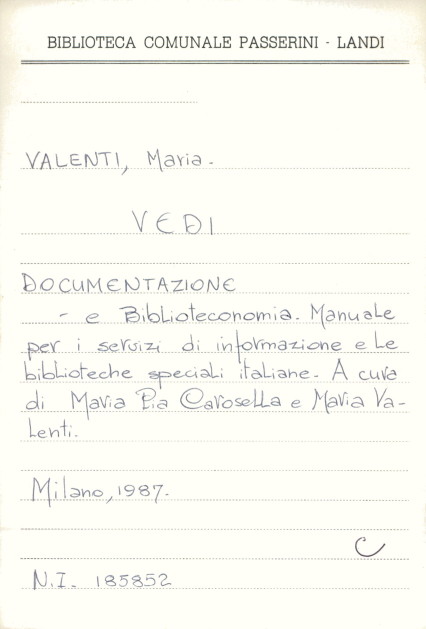 BIBLIOTECA COMUNALE PASSERINI - LANDI
VALENTI, Maria.
VEDI
DOCUMENTAZIONE
- e Biblioteconomia. Manuale
per i servizi di informazione e le
biblioteche speciali italiane. A cura
di Maria Pia Carosella e Maria Va-
lenti.
Milano, 1987.
C
N.I. 185852